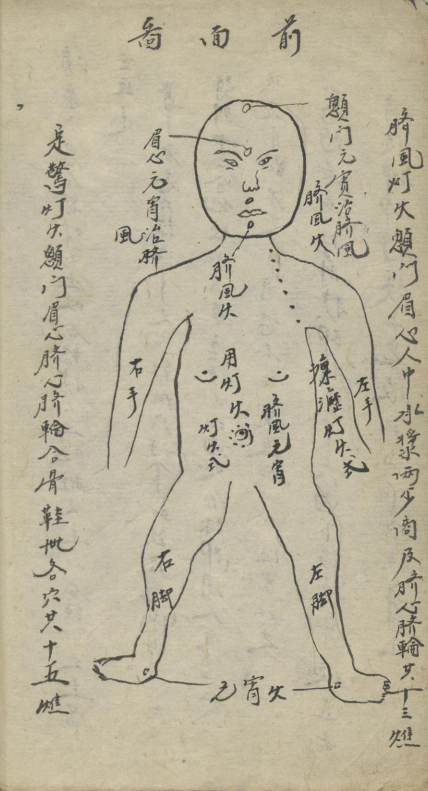 前面圖
臍風灯火顖门眉心人中承漿兩少商及臍心臍輪共十三燋
顖门元宵治臍風
臍風火
眉心元宵治臍
風
臍風火
左手
右手
用灯火
灯火式
臍風元宵
瘰癧灯火式
左脚
右脚
元宵火
定驚灯火顖门眉心臍心臍輪合骨鞋帶各穴共十五燋